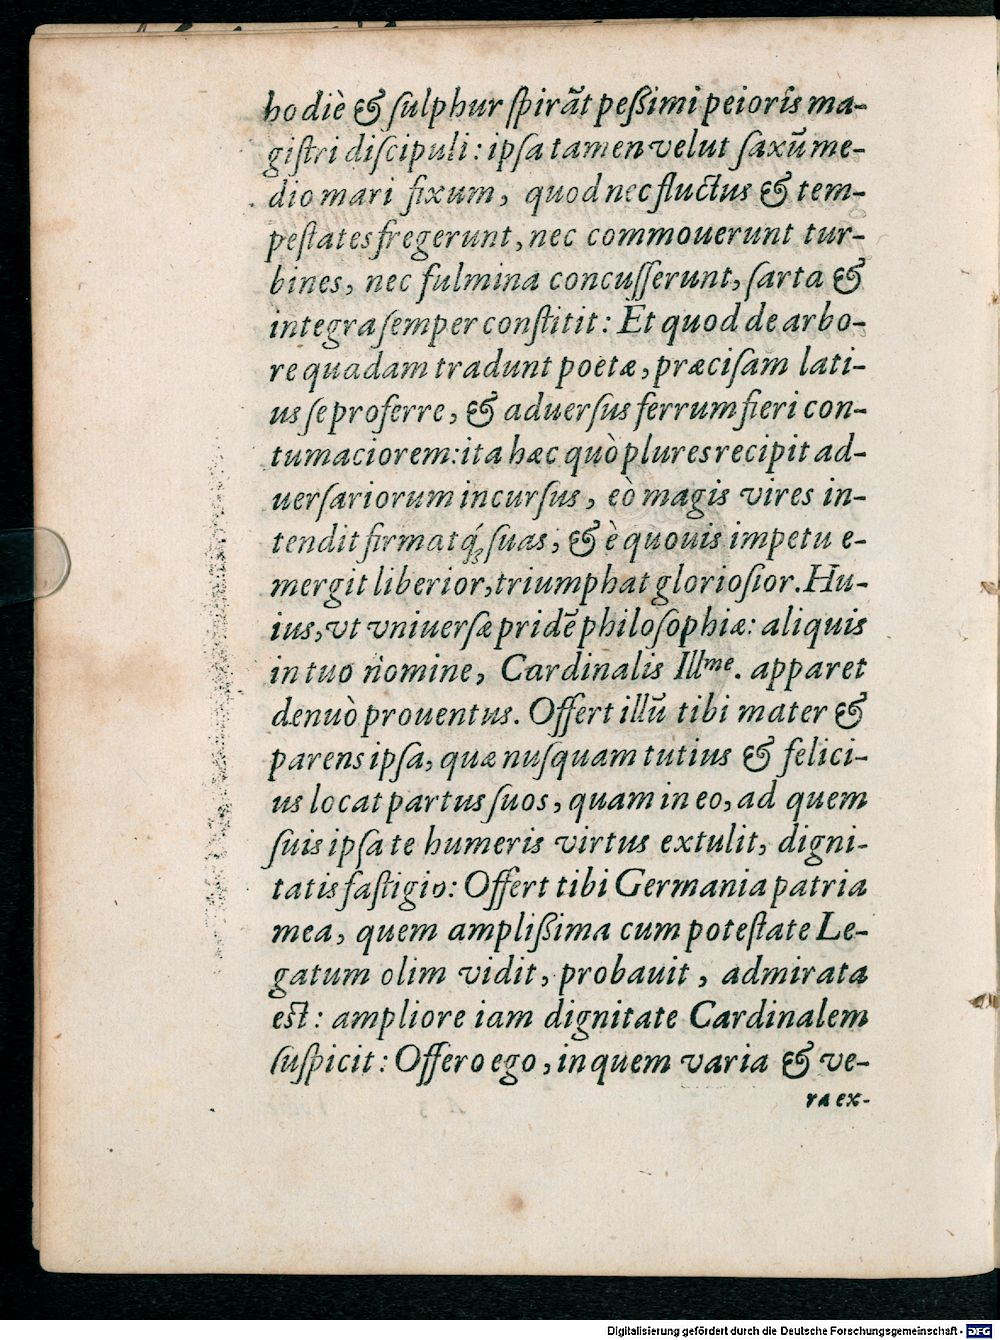 hodiè & ſulphur ſpirãt peßimi peiorîs ma-
giſtri diſcipuli: ipſa tamen velut ſaxũ me-
dio mari fixum, quod nec fluctus & tem-
peſtates fregerunt, nec commouerunt tur-
bines, nec fulmina concuſſerunt, ſarta &
integra ſemper conſtitit: Et quod de arbo-
re quadam tradunt poëtæ, præciſam lati-
us ſe proferre, & aduerſus ferrum fieri con-
tumaciorem: ita hæc quò plures recipit ad-
uerſariorum incurſus, eò magis vires in-
tendit firmatq́ꝫ ſuas, & è quouis impetu e-
mergit liberior, triumphat glorioſior. Hu-
ius, vt vniuerſæ pridẽ philoſophiæ: aliquis
in tuo nomine, Cardinalis Illᵐᵉ. apparet
denuò prouentus. Offert illũ tibi mater &
parens ipſa, quæ nuſquam tutius & felici-
us locat partus ſuos, quam in eo, ad quem
ſuis ipſa te humeris virtus extulit, digni-
tatis faſtigio: Offert tibi Germania patria
mea, quem amplißima cum poteſtate Le-
gatum olim vidit, probauit, admirata
est: ampliore iam dignitate Cardinalem
ſuſpicit: Offero ego, in quem varia & ve-
ra ex-
Digitalisierung gefördert durch die Deutsche Forschungsgemeinschaft - DFG